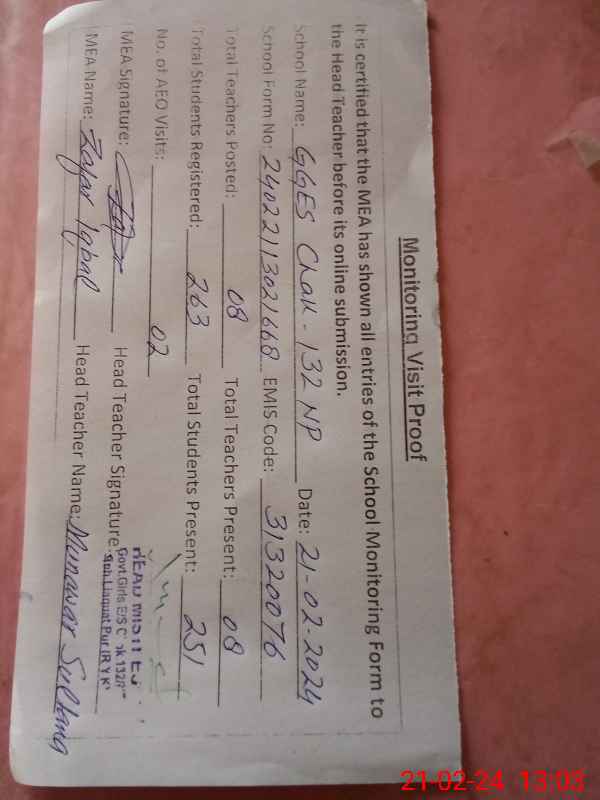 Monitoring Visit Proof
It is certified that the MEA has shown all entries of the School Monitoring Form to
the Head Teacher before its online submission.
School Name: GGES Chak-132 NP Date: 21-02-2024
School Form No: 24022113021668 EMIS Code: 31320076
Total Teachers Posted: 08 Total Teachers Present: 08
Total Students Registered: 263 Total Students Present: 251
No. of AEO Visits: 02
MEA Signature: Head Teacher Signature:
Govt.Girls E/S
Liaquat Pur (R Y K)
MEA Name: Zafar Iqbal Head Teacher Name: Munawar Sultana
21-02-24 13:03